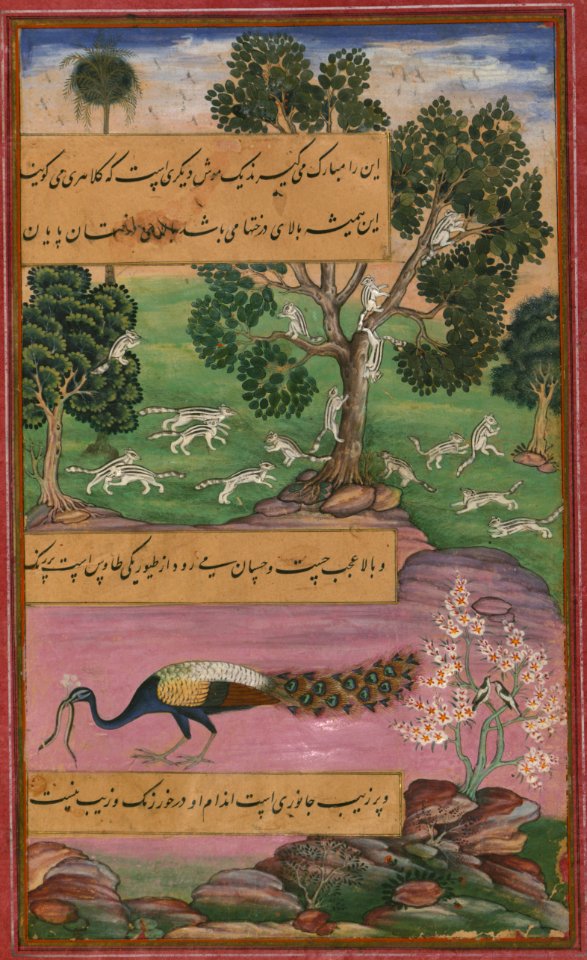 این را مبارک می گیرند یک موش دیگری است که کلاهری می گویند
این همیشه بالای درختها می باشد پایان
و بالا عجب چست و چسپان می رود از طیور یکی طاوس است پر رنگ
و پر زیب جانوری است اندام او در خور رنگ و زیب نیست